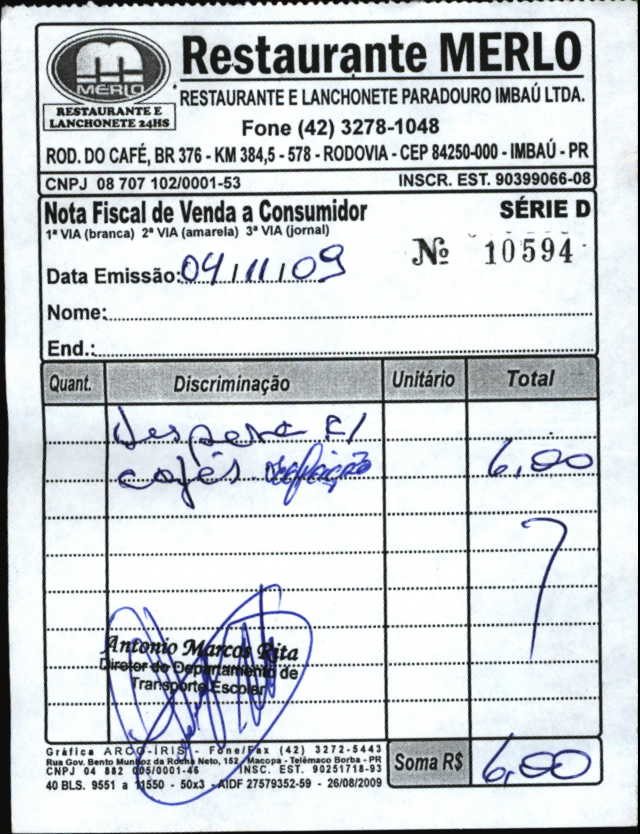 MERLO
RESTAURANTE E
LANCHONETE 24HS
Restaurante MERLO
RESTAURANTE E LANCHONETE PARADOURO IMBAÚ LTDA.
Fone (42) 3278-1048
ROD. DO CAFÉ, BR 376 - KM 384,5 - 578 - RODOVIA - CEP 84250-000 - IMBAÚ - PR
CNPJ 08 707 102/0001-53 INSCR. EST. 90399066-08
Nota Fiscal de Venda a Consumidor SÉRIE D
1ª VIA (branca) 2ª VIA (amarela) 3ª VIA (jornal)
Nº 10594
Data Emissão: 04/11/09
Nome:
End.:
Quant. Discriminação Unitário Total
despesa c/
cafés refeição 6,00
Antonio Marcos Rita
Diretor do Departamento de
Transporte Escolar
Gráfica ARCO-ÍRIS - Fone/Fax (42) 3272-5443
Rua Gov. Bento Munhoz da Rocha Neto, 152 Macopa - Telêmaco Borba - PR
CNPJ 04 882 005/0001-46 INSC. EST. 90251718-93
40 BLS. 9551 a 11550 - 50x3 - AIDF 27579352-59 - 26/08/2009
Soma R$ 6,00